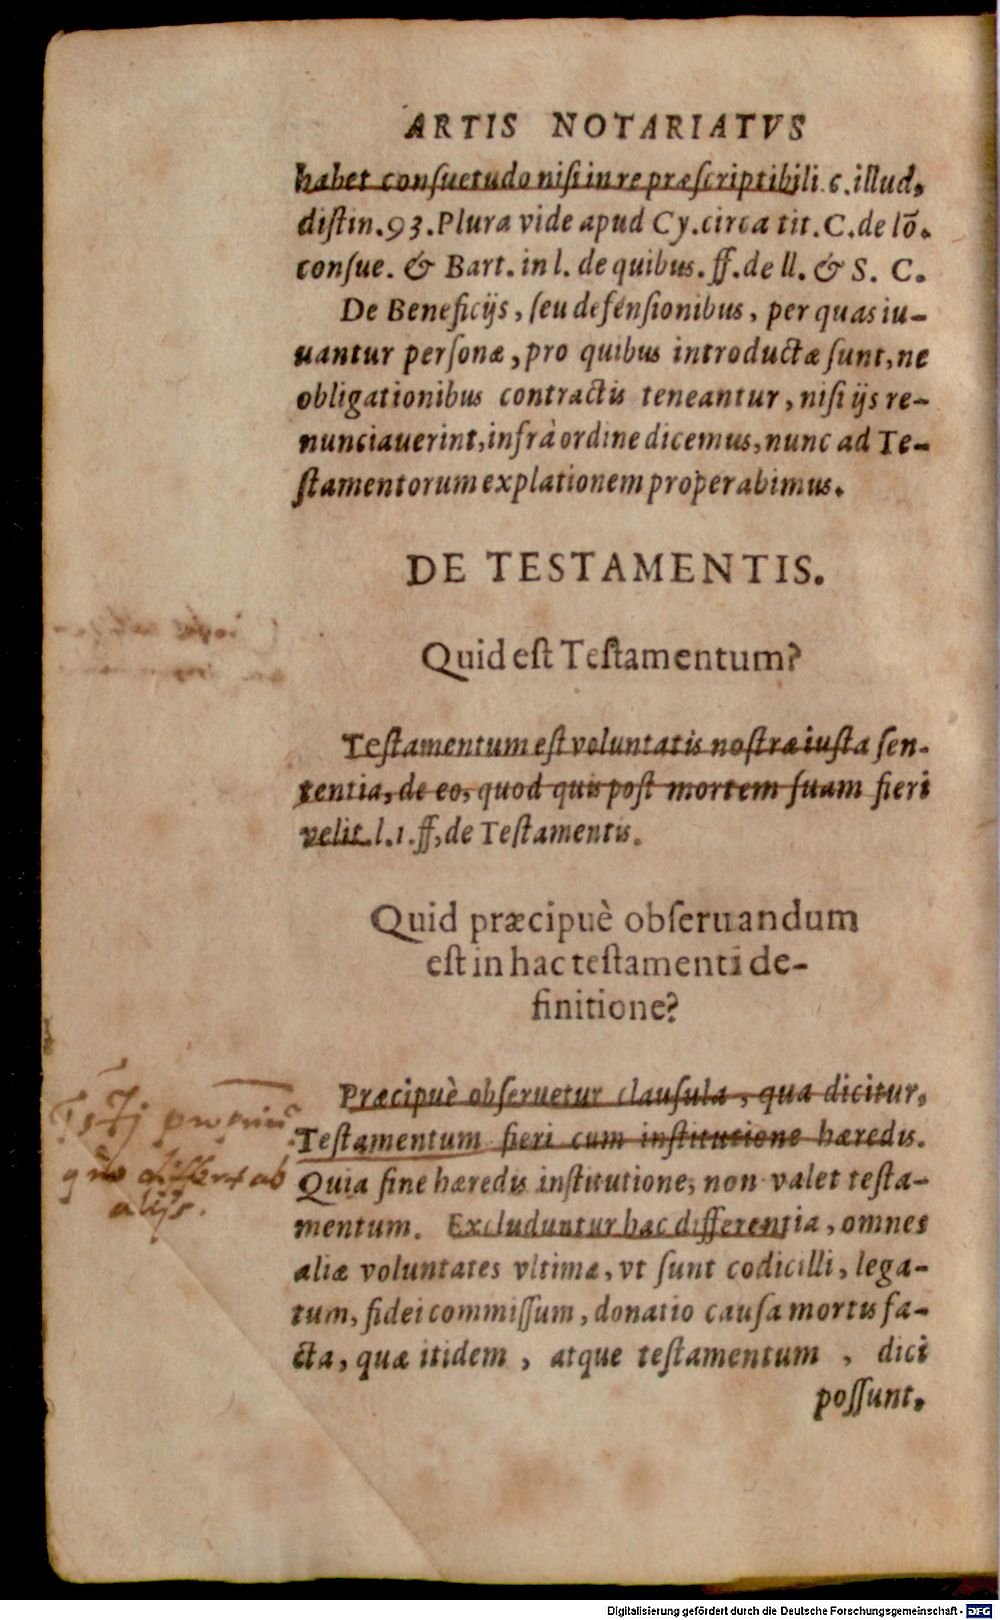 ARTIS NOTARIATVS
habet consuetudo nisi in re præscriptibili. c. illud,
distin. 93. Plura vide apud Cy. circa tit. C. de lō.
consue. & Bart. in l. de quibus. ff. de ll. & S. C.
De Beneficijs, seu defensionibus, per quas iu-
uantur personæ, pro quibus introductæ sunt, ne
obligationibus contractis teneantur, nisi ijs re-
nunciauerint, infrà ordine dicemus, nunc ad Te-
stamentorum explationem properabimus.
DE TESTAMENTIS.
Quid est Testamentum?
Testamentum est voluntatis nostræ iusta sen-
tentia, de eo, quod quis post mortem suam fieri
velit. l. 1. ff, de Testamentis.
Quid præcipuè obseruandum
est in hac testamenti de-
finitione?
Præcipuè obseruetur clausula, qua dicitur,
Testamentum fieri cum institutione hæredis.
Quia sine hæredis institutione, non valet testa-
mentum. Excluduntur hac differentia, omnes
aliæ voluntates vltimæ, vt sunt codicilli, lega-
tum, fidei commissum, donatio causa mortis fa-
cta, quæ itidem, atque testamentum, dici
possunt,
differt ab
alijs.
Digitalisierung gefördert durch die Deutsche Forschungsgemeinschaft - DFG